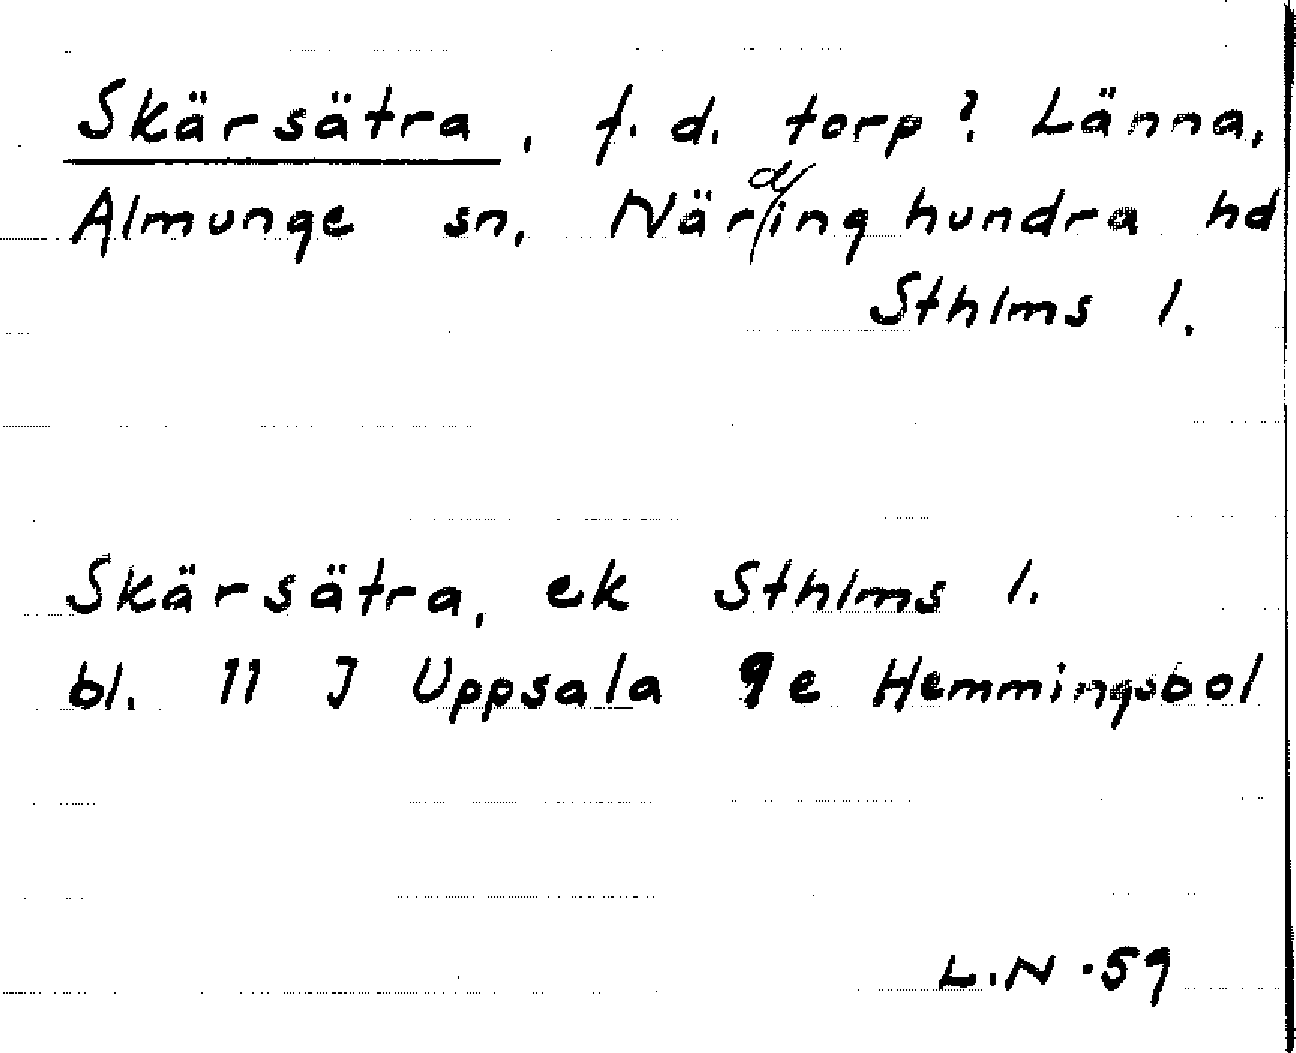 Skärsätra, f. d. torp? Länna,
Almunge sn, Närdinghundra hd
Sthlms l.
Skärsätra, ek Sthlms l.
bl. 11 J Uppsala 9e Hemmingsbol
L.N -59